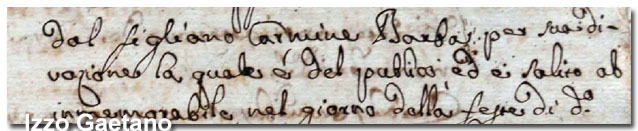 dal sigliano Carmine Barba, per sua di-
vozione la quale é del publico ed é solito ab
immemorabile nel giorno della feste di d.ª
Izzo Gaetano